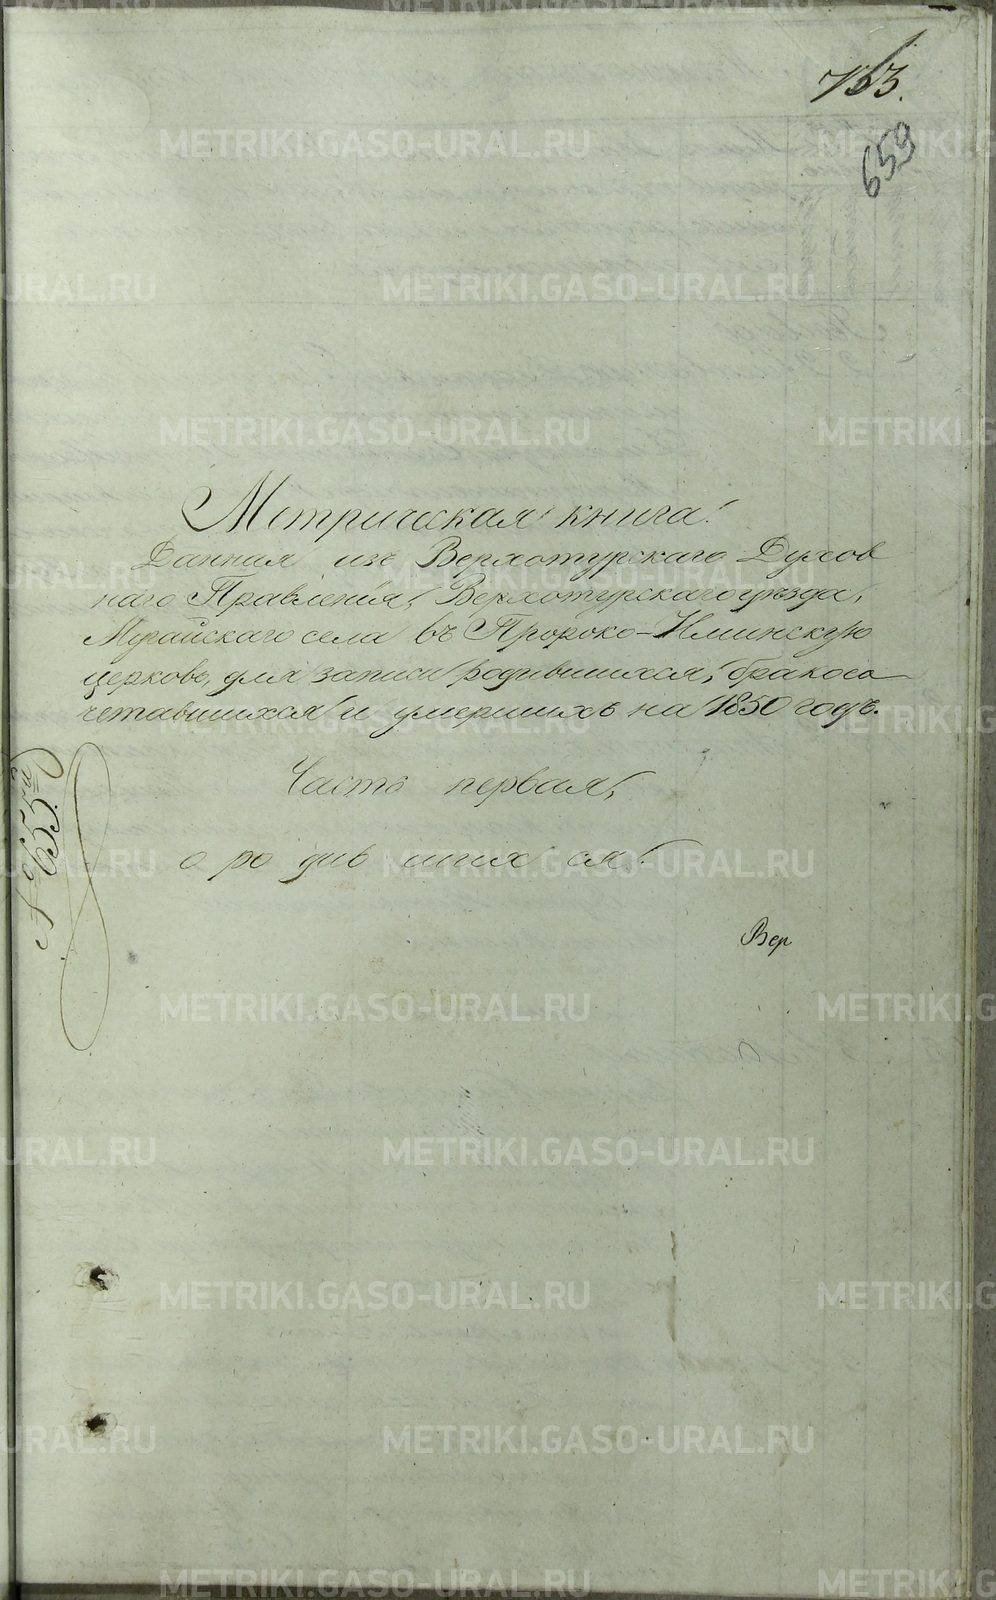 763.
659
Метрическая книга.
Данная изъ Верхотурскаго Духов
наго Правленія, Верхотурскаго уѣзда,
Мурайскаго села въ Пророко-Илиинскую
церковь, для записи родившихся, бракосо
четавшихся и умершихъ на 1850 годъ.
Часть первая,
о родившихся.
Вер
METRIKI.GASO-URAL.RU